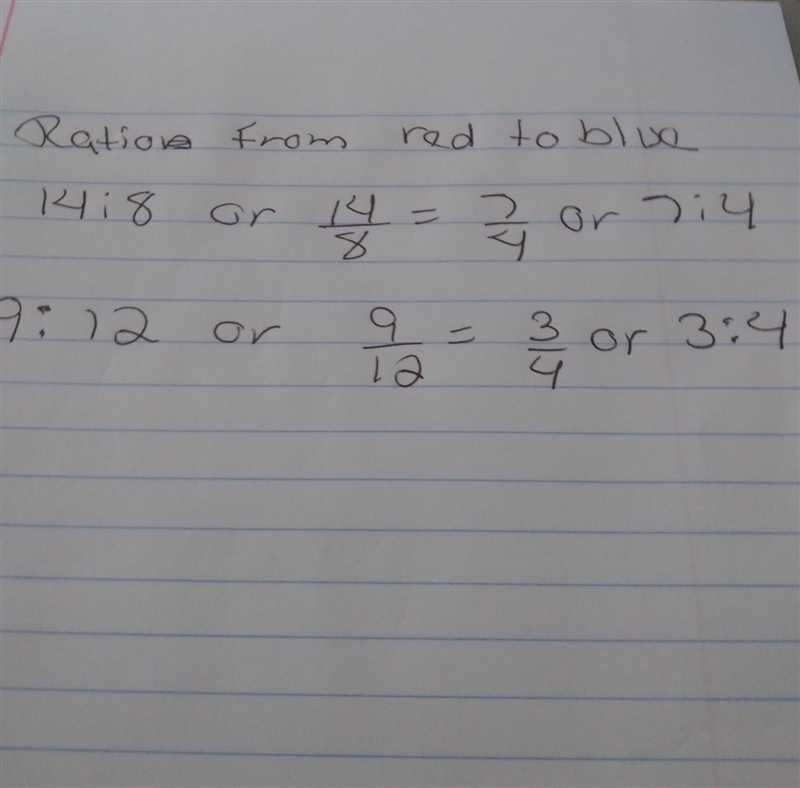 Ratio from red to blue
14:8 or 14/8 = 7/4 or 7:4
9:12 or 9/12 = 3/4 or 3:4